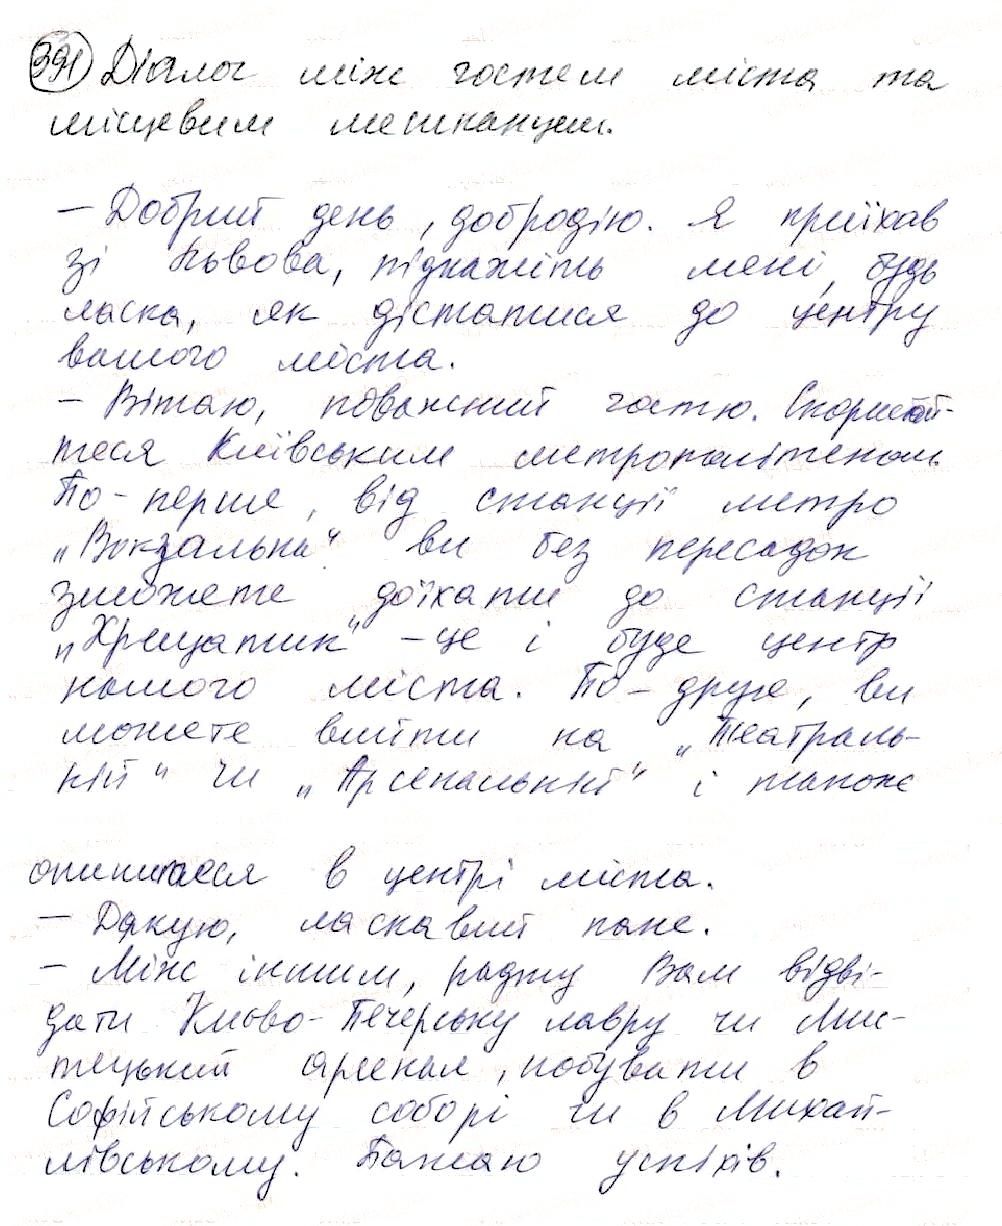 391 Діалог між гостем міста та
місцевим мешканцем.
– Добрий день, добродію. Я приїхав
зі Львова, підкажіть мені, будь
ласка, як дістатися до центру
вашого міста.
– Вітаю, поважний гостю. Скористай-
теся Київським метрополітеном.
По-перше, від станції метро
„Вокзальна" ви без пересадок
зможете доїхати до станції
„Хрещатик" – це і буде центр
нашого міста. По-друге, ви
можете вийти на „Театраль-
ній" чи „Арсенальній" і також
опинитеся в центрі міста.
– Дякую, ласкавий пане.
– Між іншим, раджу Вам відві-
дати Києво-Печерську лавру чи Мис-
тецький арсенал, побувати в
Софійському соборі чи в Михай-
лівському. Бажаю успіхів.